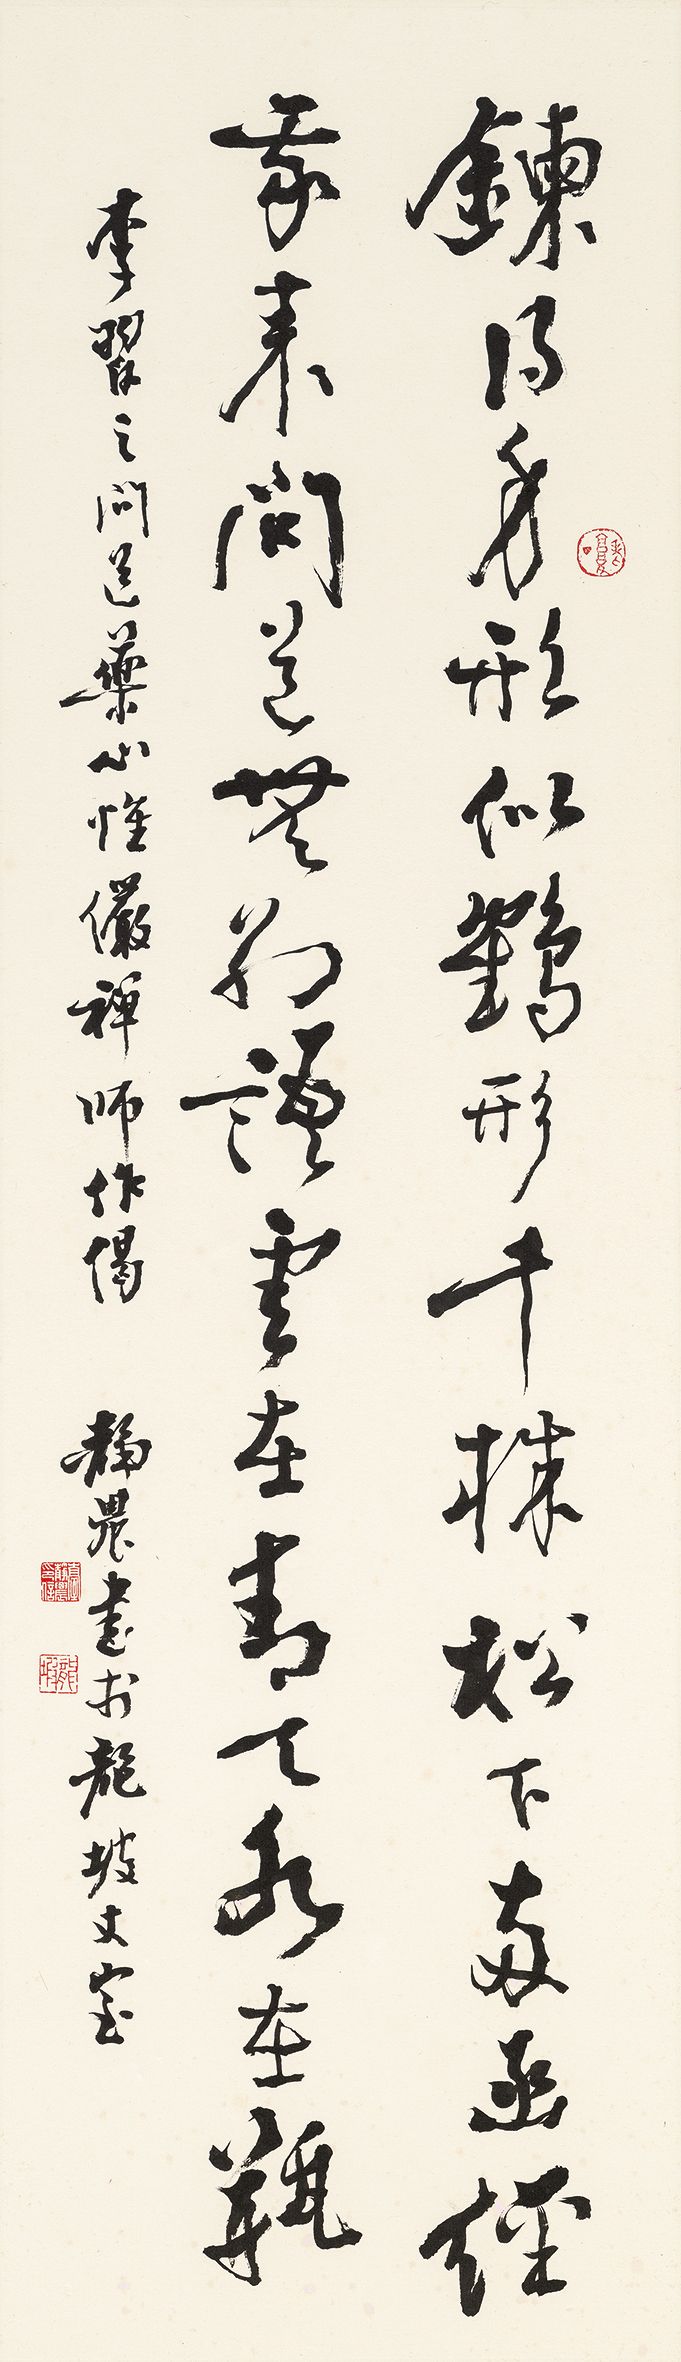 鍊得身形似鶴形千株松下兩函經
我來問道無雲在青天水在瓶
李習之問道藥山惟儼禪師作偈 靜農書於龍坡丈室
龍坡